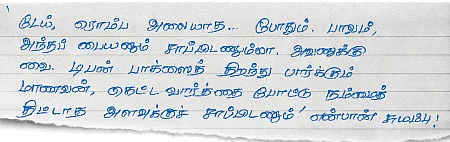 டேய், ரொம்ப அலையாத... போதும். பாவம்,
அந்தப் பையனும் சாப்பிடணும்ல. அவனுக்கு
வை. டிபன் பாக்ஸைத் திறந்து பார்க்கும்
மாணவன், கெட்ட வார்த்தை போட்டு நம்மைத்
திட்டாத அளவுக்குச் சாப்பிடணும்' என்பான்